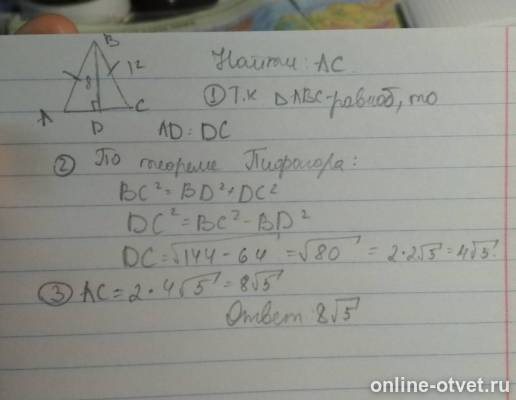 B
8
12
A
C
D
Найти: AC
① Т.к △ABC-равноб, то
AD = DC
② По теореме Пифагора:
BC² = BD² + DC²
DC² = BC² - BD²
DC = √144 - 64 = √80 = 2·2√5 = 4√5.
③ AC = 2·4√5 = 8√5
Ответ: 8√5
online-otvet.ru